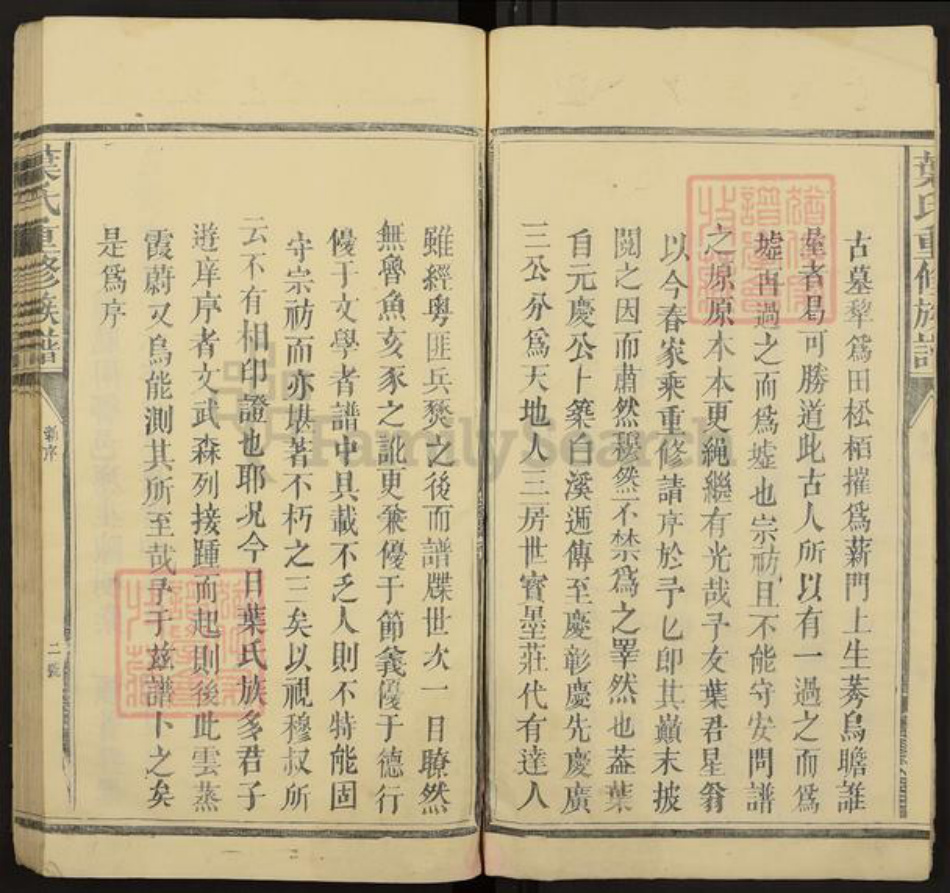 葉氏重修族譜
古墓犂爲田松栢摧爲薪門上生莠烏瞻誰
屋者曷可勝道此古人所以有一過之而爲
墟再過之而爲墟也宗祊且不能守安問譜
之原原本本更繩繼有光哉予友葉君星翁
以今春家乘重修請序於予乜卽其巔末披
閱之因而肅然穆然不禁爲之睪然也葢葉
自元慶公卜築白溪遞傳至慶彰慶先慶廣
三公分爲天地人三房世寳墨莊代有達人
雖經粵匪兵燹之後而譜牒世次一目瞭然
無魯魚亥豕之訛更兼優于節義優于德行
優于文學者譜中具載不乏人則不特能固
守宗祊而亦堪著不朽之三矣以視穆叔所
云不有相印證也耶况今日葉氏族多君子
遊庠序者文武森列接踵而起則後此雲蒸
霞蔚又烏能測其所至哉予于茲譜卜之矣
是爲序
葉氏重修族譜
新序
二
FamilySearch